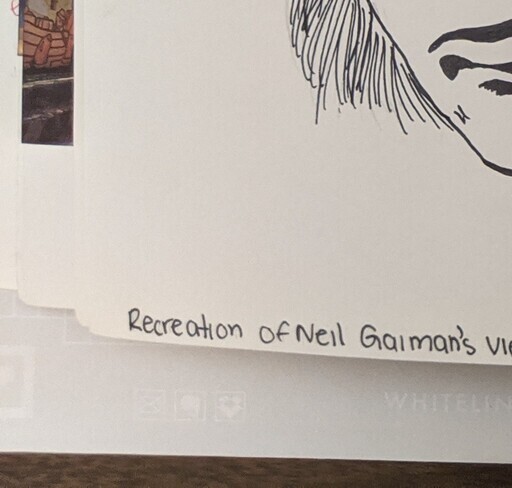 Recreation of Neil Gaiman's
WHITELIN